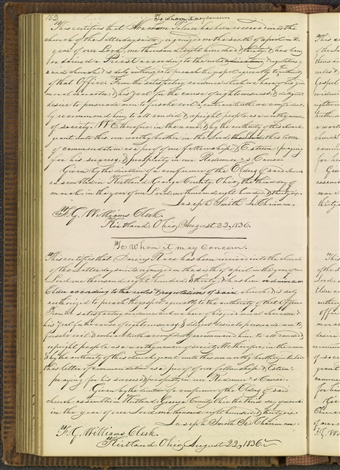 To whom it may concern
This certifies that has been received into the
church of the Latter day saints, organized on the sixth of april in the
year of our Lord, one thousand Eight hundred & thirty, & has been
ordained a according to the rules regulations
said church, & is duly authorized to preach the gospel agreeably to the authority
of that office. From the satisfactory evidence which we have of his good
moral character, & his zeal for the cause of righteousness, & diligent
desire to persuade men to forsake evil & embrace truth, we confidently
recommend him to all candid & upright people as a worthy member
of society. We therefore, in the name, & by the authority of this church
grant unto this our worthy brother in the Lord this letter
of commendation as a proof of our fellowship & Esteem: praying
for his success & prosperity in our Redeemer's Cause.
Given by the direction of a conference of the Elders of said church
assembled in Kirtland, Geauga County, Ohio, the third day of
march in the year of our Lord one thousand eight hundred & thirty six.
Joseph Smith Jr. Chairman.
F. G. Williams Clerk.
Kirtland Ohio, August 22, 1836.
To Whom it may Concern:
This certifies that has been received into the church
of the Latter day saints organized on the sixth of april in the year of our
Lord one thousand eight hundred & thirty, & has been ordained an
Elder according to the rules & regulations of said church, & is duly
authorized to preach the gospel agreeably to the authority of that office.
From the satisfactory evidence which we have of his good moral character, &
his zeal for the cause of righteousness, & diligent desire to persuade men to
forsake evil & embrace truth, we confidently recommend him to all candid &
upright people as a worthy member of society. We therefore, in the name,
& by the authority of this church, grant unto this our worthy brother in the Lord
this letter of commendation as a proof of our fellowship & Esteem:
praying for his success & prosperity in our Redeemer's Cause.
Given by the direction of a conference of the Elders of said
church assembled in Kirtland, Geauga County, Ohio, the third day of march
in the year of our Lord one thousand eight hundred & thirty six.
Joseph Smith Jr. Chairman.
F. G. Williams Clerk.
Kirtland Ohio, August 22, 1836.